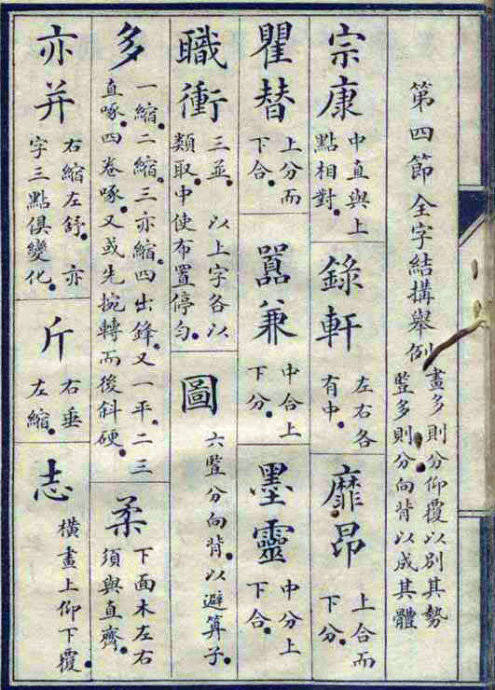 第四節 全字結構舉例
畫多則分仰覆以別其勢
豎多則分向背以成其體
宗康
中直與上
點相對。
錄軒
左右各
有中。
靡昂
上合而
下分。
瞿替
上分而
下合。
囂兼
中合上
下分。
墨靈
中分上
下合。
職衝
三並。以上字各以
類取。中使布置停勻。
圖
六豎分向背。以避算子。
多
一縮。二縮。三亦縮。四出鋒。又一平。二三
直啄。四卷啄。又或先捥轉而後斜硬。
柔
下面木左右
須與直齊。
亦并
右縮左舒。亦
字三點俱變化。
斤
右垂
左縮。
志
橫畫上仰下覆。